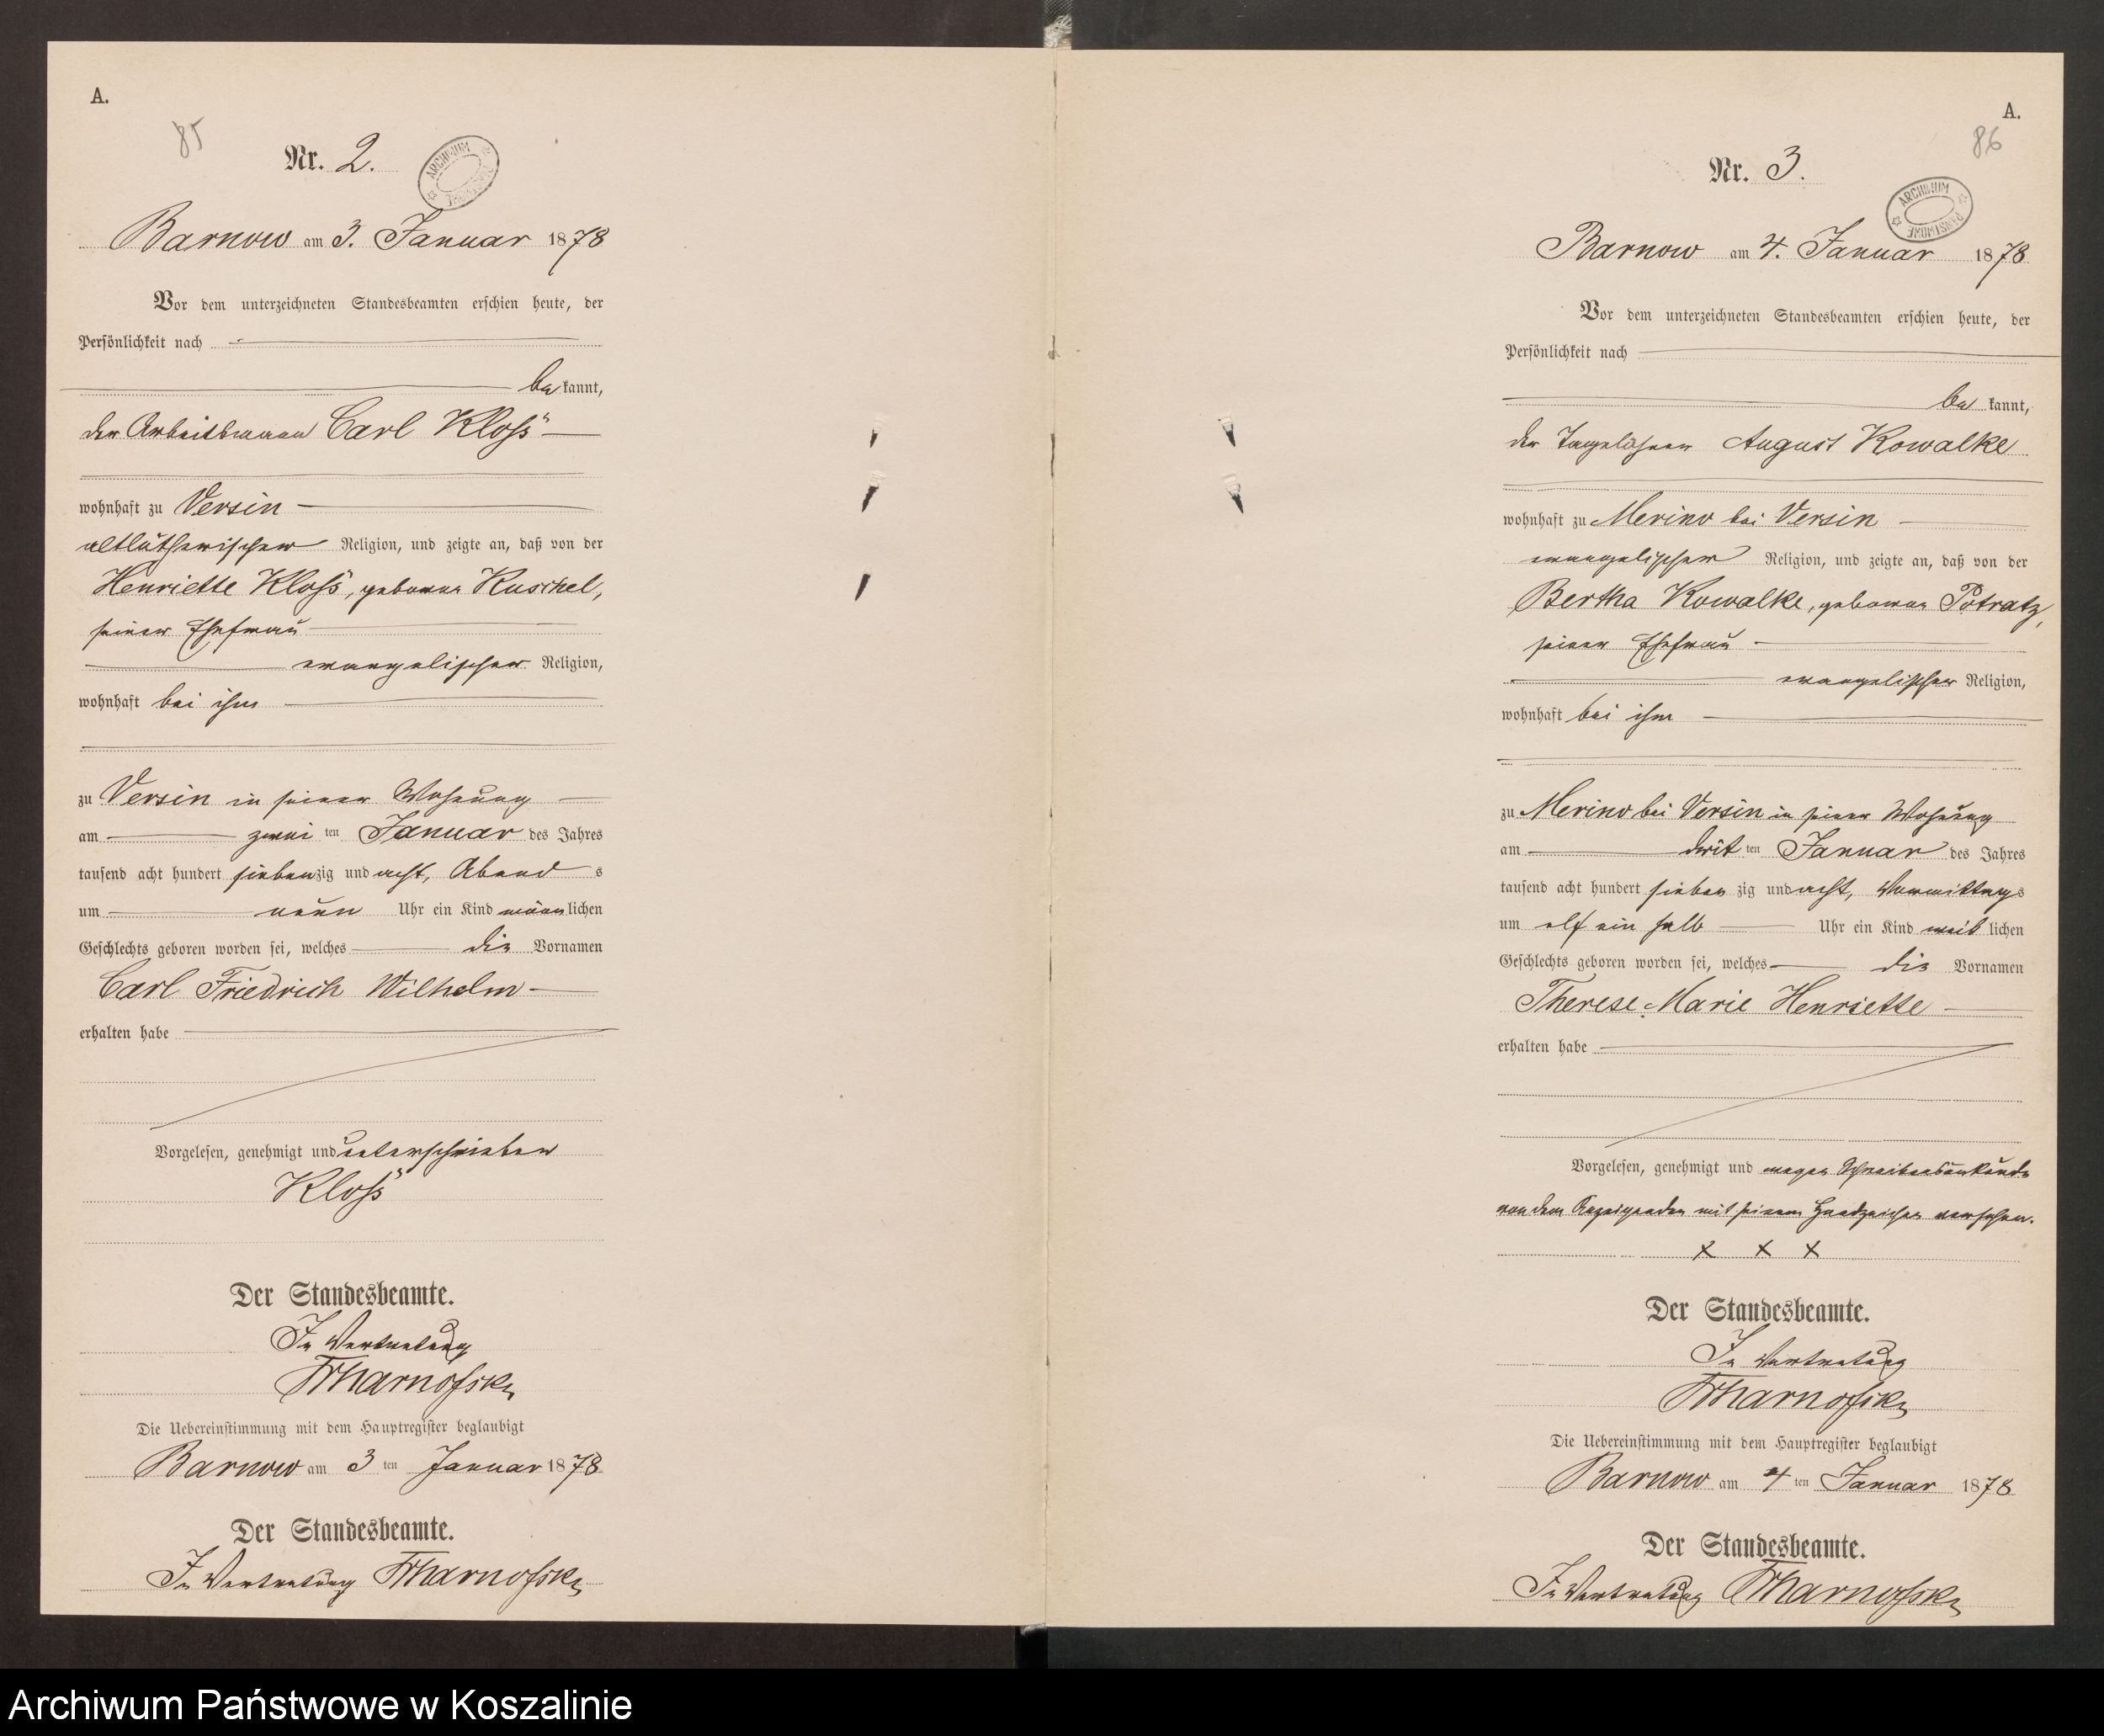 A.
85
Nr. 2.
ARCHIWUM PAŃSTWOWE
Barnow am 3. Januar 1878
Vor dem unterzeichneten Standesbeamten erschien heute, der
Persönlichkeit nach
bekannt,
der Arbeitsmann Carl Kloß
wohnhaft zu Versin
altlutherischer Religion, und zeigte an, daß von der
Henriette Kloß, geborene Kuschel,
seiner Ehefrau
evangelischer Religion,
wohnhaft bei ihm
zu Versin in seiner Wohnung
am zwei ten Januar des Jahres
tausend acht hundert siebenzig und acht, Abend s
um neun Uhr ein Kind männlichen
Geschlechts geboren worden sei, welches die Vornamen
Carl Friedrich Wilhelm
erhalten habe
Vorgelesen, genehmigt und unterschrieben
Kloß
Der Standesbeamte.
In Vertretung
Die Uebereinstimmung mit dem Hauptregister beglaubigt
Barnow am 3 ten Januar 1878
Der Standesbeamte.
In Vertretung
A.
86
Nr. 3.
ARCHIWUM PAŃSTWOWE
Barnow am 4. Januar 1878
Vor dem unterzeichneten Standesbeamten erschien heute, der
Persönlichkeit nach
bekannt,
der Tagelöhner August Kowalke
wohnhaft zu Merino bei Versin
evangelischer Religion, und zeigte an, daß von der
Bertha Kowalke, geborene Potratz,
seiner Ehefrau
evangelischer Religion,
wohnhaft bei ihm
zu Merino bei Versin in seiner Wohnung
am drit ten Januar des Jahres
tausend acht hundert siebenzig und acht, Vormittags
um elf ein halb Uhr ein Kind weiblichen
Geschlechts geboren worden sei, welches die Vornamen
Therese Marie Henriette
erhalten habe
Vorgelesen, genehmigt und wegen Schreibensunkunde
von dem Anzeigenden mit seinem Handzeichen versehen.
x x x
Der Standesbeamte.
In Vertretung
Die Uebereinstimmung mit dem Hauptregister beglaubigt
Barnow am 4 ten Januar 1878
Der Standesbeamte.
In Vertretung
Archiwum Państwowe w Koszalinie